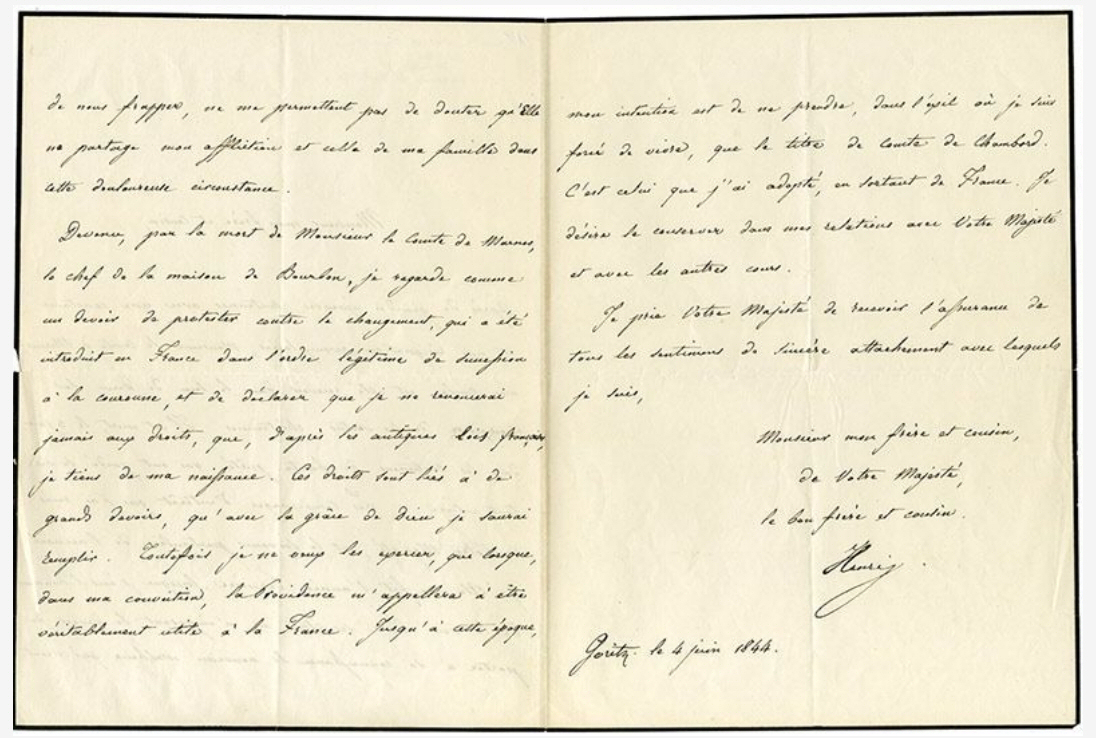 de nous frapper, ne me permettent pas de douter qu'Elle
ne partage mon affliction et celle de ma famille dans
cette douloureuse circonstance.
Devenu, par la mort de Monsieur le Comte de Marnes,
le chef de la maison de Bourbon, je regarde comme
un devoir de protester contre le changement, qui a été
introduit en France dans l'ordre légitime de succession
à la couronne, et de déclarer que je ne renoncerai
jamais aux droits, que, d'après les antiques lois françaises,
je tiens de ma naissance. Ces droits sont liés à de
grands devoirs, qu'avec la grâce de Dieu je saurai
remplir. Toutefois je ne veux les exercer, que lorsque,
dans ma conviction, la Providence m'appellera à être
véritablement utile à la France. Jusqu'à cette époque,
mon intention est de ne prendre, dans l'exil où je suis
forcé de vivre, que le titre de Comte de Chambord.
C'est celui que j'ai adopté, en sortant de France. Je
désire le conserver dans mes relations avec Votre Majesté
et avec les autres cours.
Je prie Votre Majesté de recevoir l'assurance de
tous les sentimens de sincère attachement avec lesquels
je suis,
Monsieur mon frère et cousin,
de Votre Majesté,
le bon frère et cousin.
Henri.
Goritz. le 4 juin 1844.